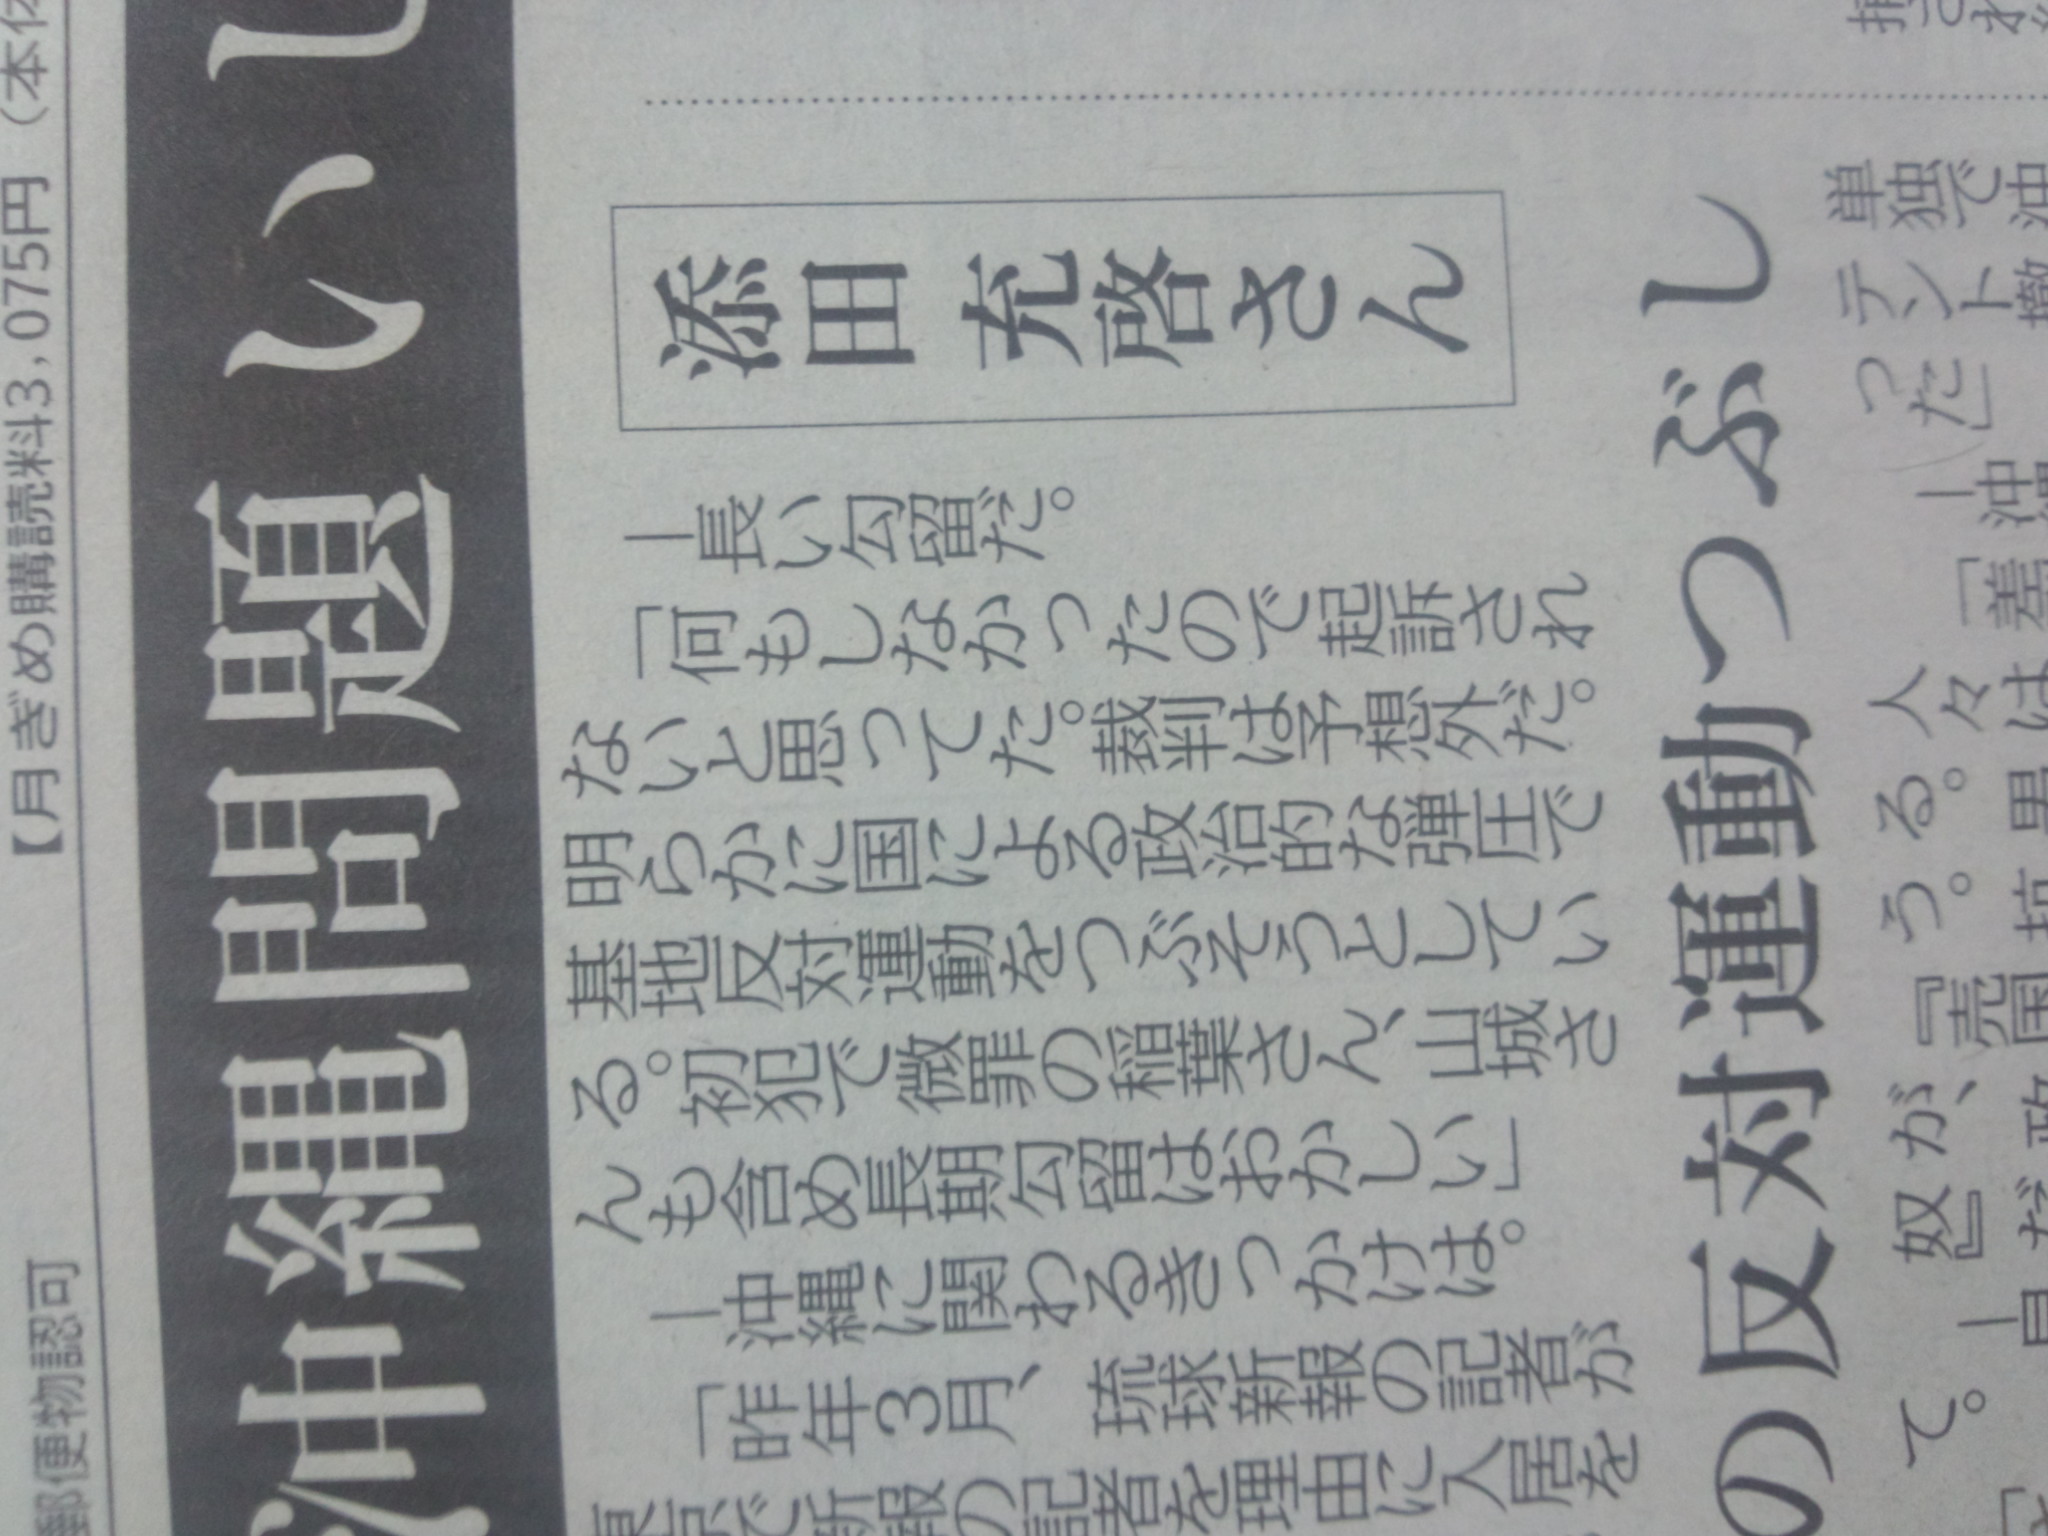 郵便物認可
【月ぎめ購読料3,075円(本体
沖縄問題い し
添田 充啓さん
―長い勾留だ。
「何もしなかったので起訴され
ないと思ってた。裁判は予想外だ。
明らかに国による政治的な弾圧で
基地反対運動をつぶそうとしてい
る。初犯で微罪の稲葉さん、山城さ
んも含め長期勾留はおかしい」
―沖縄に関わるきっかけは。
「昨年3月、琉球新報の記者が
東京で新報の記者を理由に入居を
の反対運動つぶし
単独で沖
テント撤
った」
―沖縄
「差
人々は
る。男
う。抗
『売国
奴』が、政
だ
て。